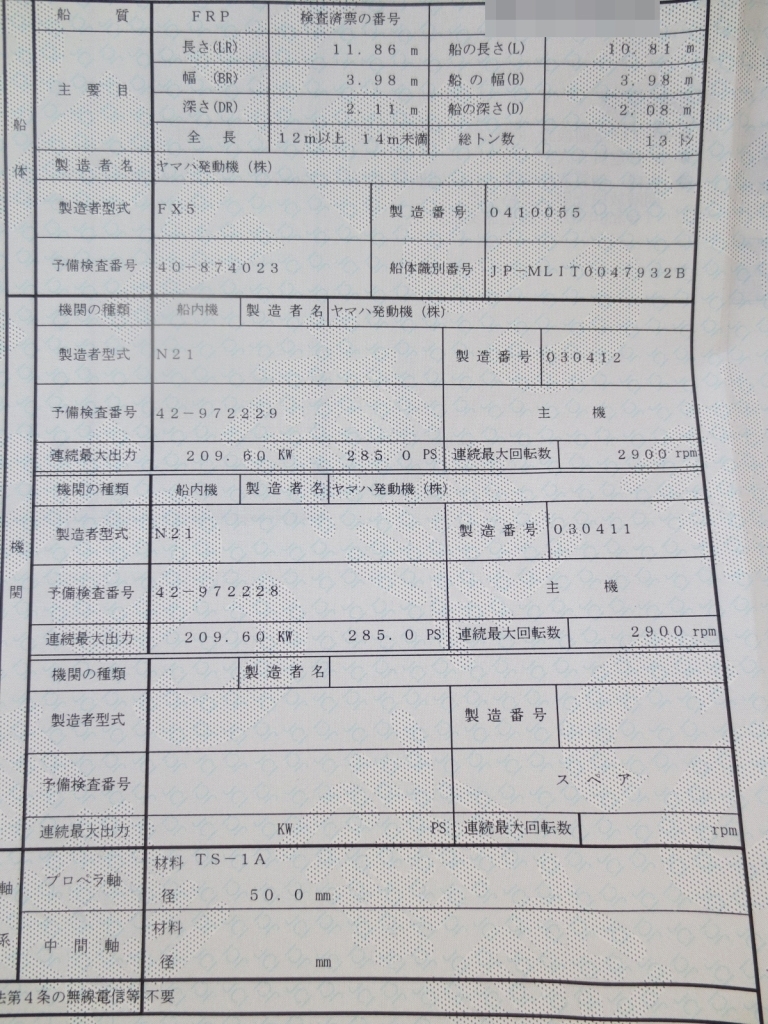 船質 FRP 検査済票の番号
船体
主要目 長さ(LR) 11.86 m 船の長さ(L) 10.81 m
幅(BR) 3.98 m 船の幅(B) 3.98 m
深さ(DR) 2.11 m 船の深さ(D) 2.08 m
全長 12m以上 14m未満 総トン数 13 トン
製造者名 ヤマハ発動機(株)
製造者型式 FX5 製造番号 0410055
予備検査番号 40-874023 船体識別番号 JP-MLIT0047932B
機関
機関の種類 船内機 製造者名 ヤマハ発動機(株)
製造者型式 N21 製造番号 030412
予備検査番号 42-972229 主機
連続最大出力 209.60 KW 285.0 PS 連続最大回転数 2900 rpm
機関の種類 船内機 製造者名 ヤマハ発動機(株)
製造者型式 N21 製造番号 030411
予備検査番号 42-972228 主機
連続最大出力 209.60 KW 285.0 PS 連続最大回転数 2900 rpm
機関の種類 製造者名
製造者型式 製造番号
予備検査番号 スペア
連続最大出力 KW PS 連続最大回転数 rpm
軸系
プロペラ軸 材料 TS-1A
径 50.0 mm
中間軸 材料
径 mm
法第4条の無線電信等 不要